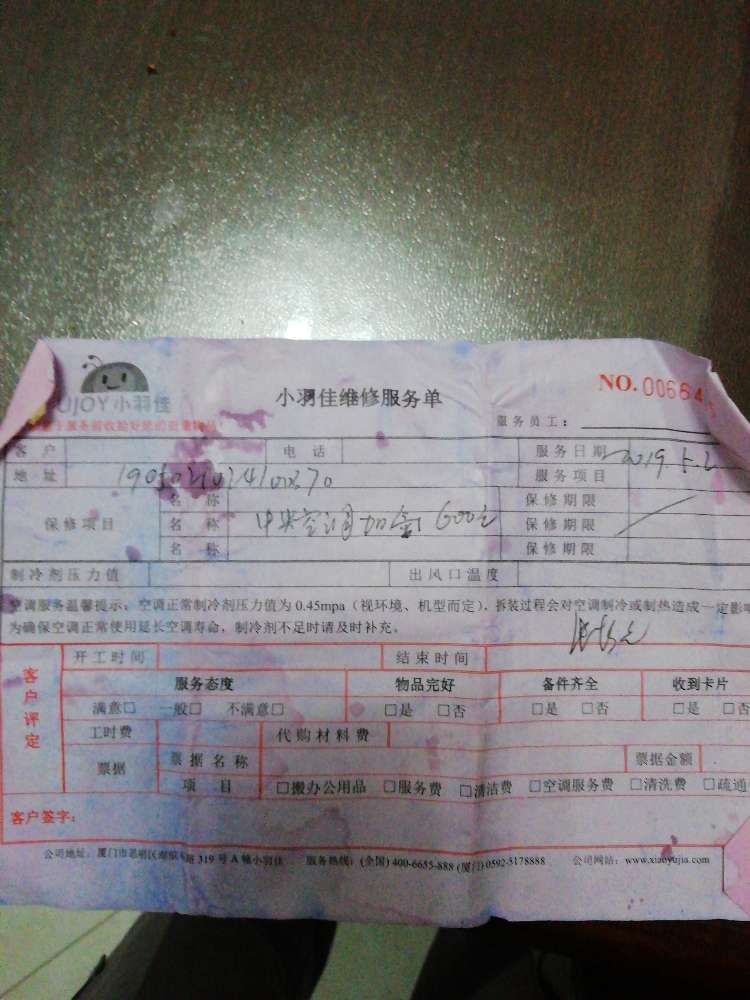 UJOY小羽佳
小羽佳维修服务单
NO. 0066
服务员工：
客户 电话 服务日期 2019.5.2
地址 服务项目
保修项目 名称 保修期限
名称 中央空调加 600元 保修期限
名称 保修期限
制冷剂压力值 出风口温度
空调服务温馨提示：空调正常制冷剂压力值为 0.45mpa（视环境、机型而定），拆装过程会对空调制冷或制热造成一定影响
为确保空调正常使用延长空调寿命，制冷剂不足时请及时补充。
客户评定 开工时间 结束时间
服务态度 物品完好 备件齐全 收到卡片
满意□ 一般□ 不满意□ □是 □否 □是 □否 □是 □否
工时费 代购材料费
票据 票据名称 票据金额
项目 □搬办公用品 □服务费 □清洁费 □空调服务费 □清洗费 □疏通
客户签字：
公司地址：厦门市思明区 路 319 号 A 幢小羽佳 服务热线：(全国) 400-6655-888 (厦门) 0592-5178888 公司网站：www.xiaoyujia.com